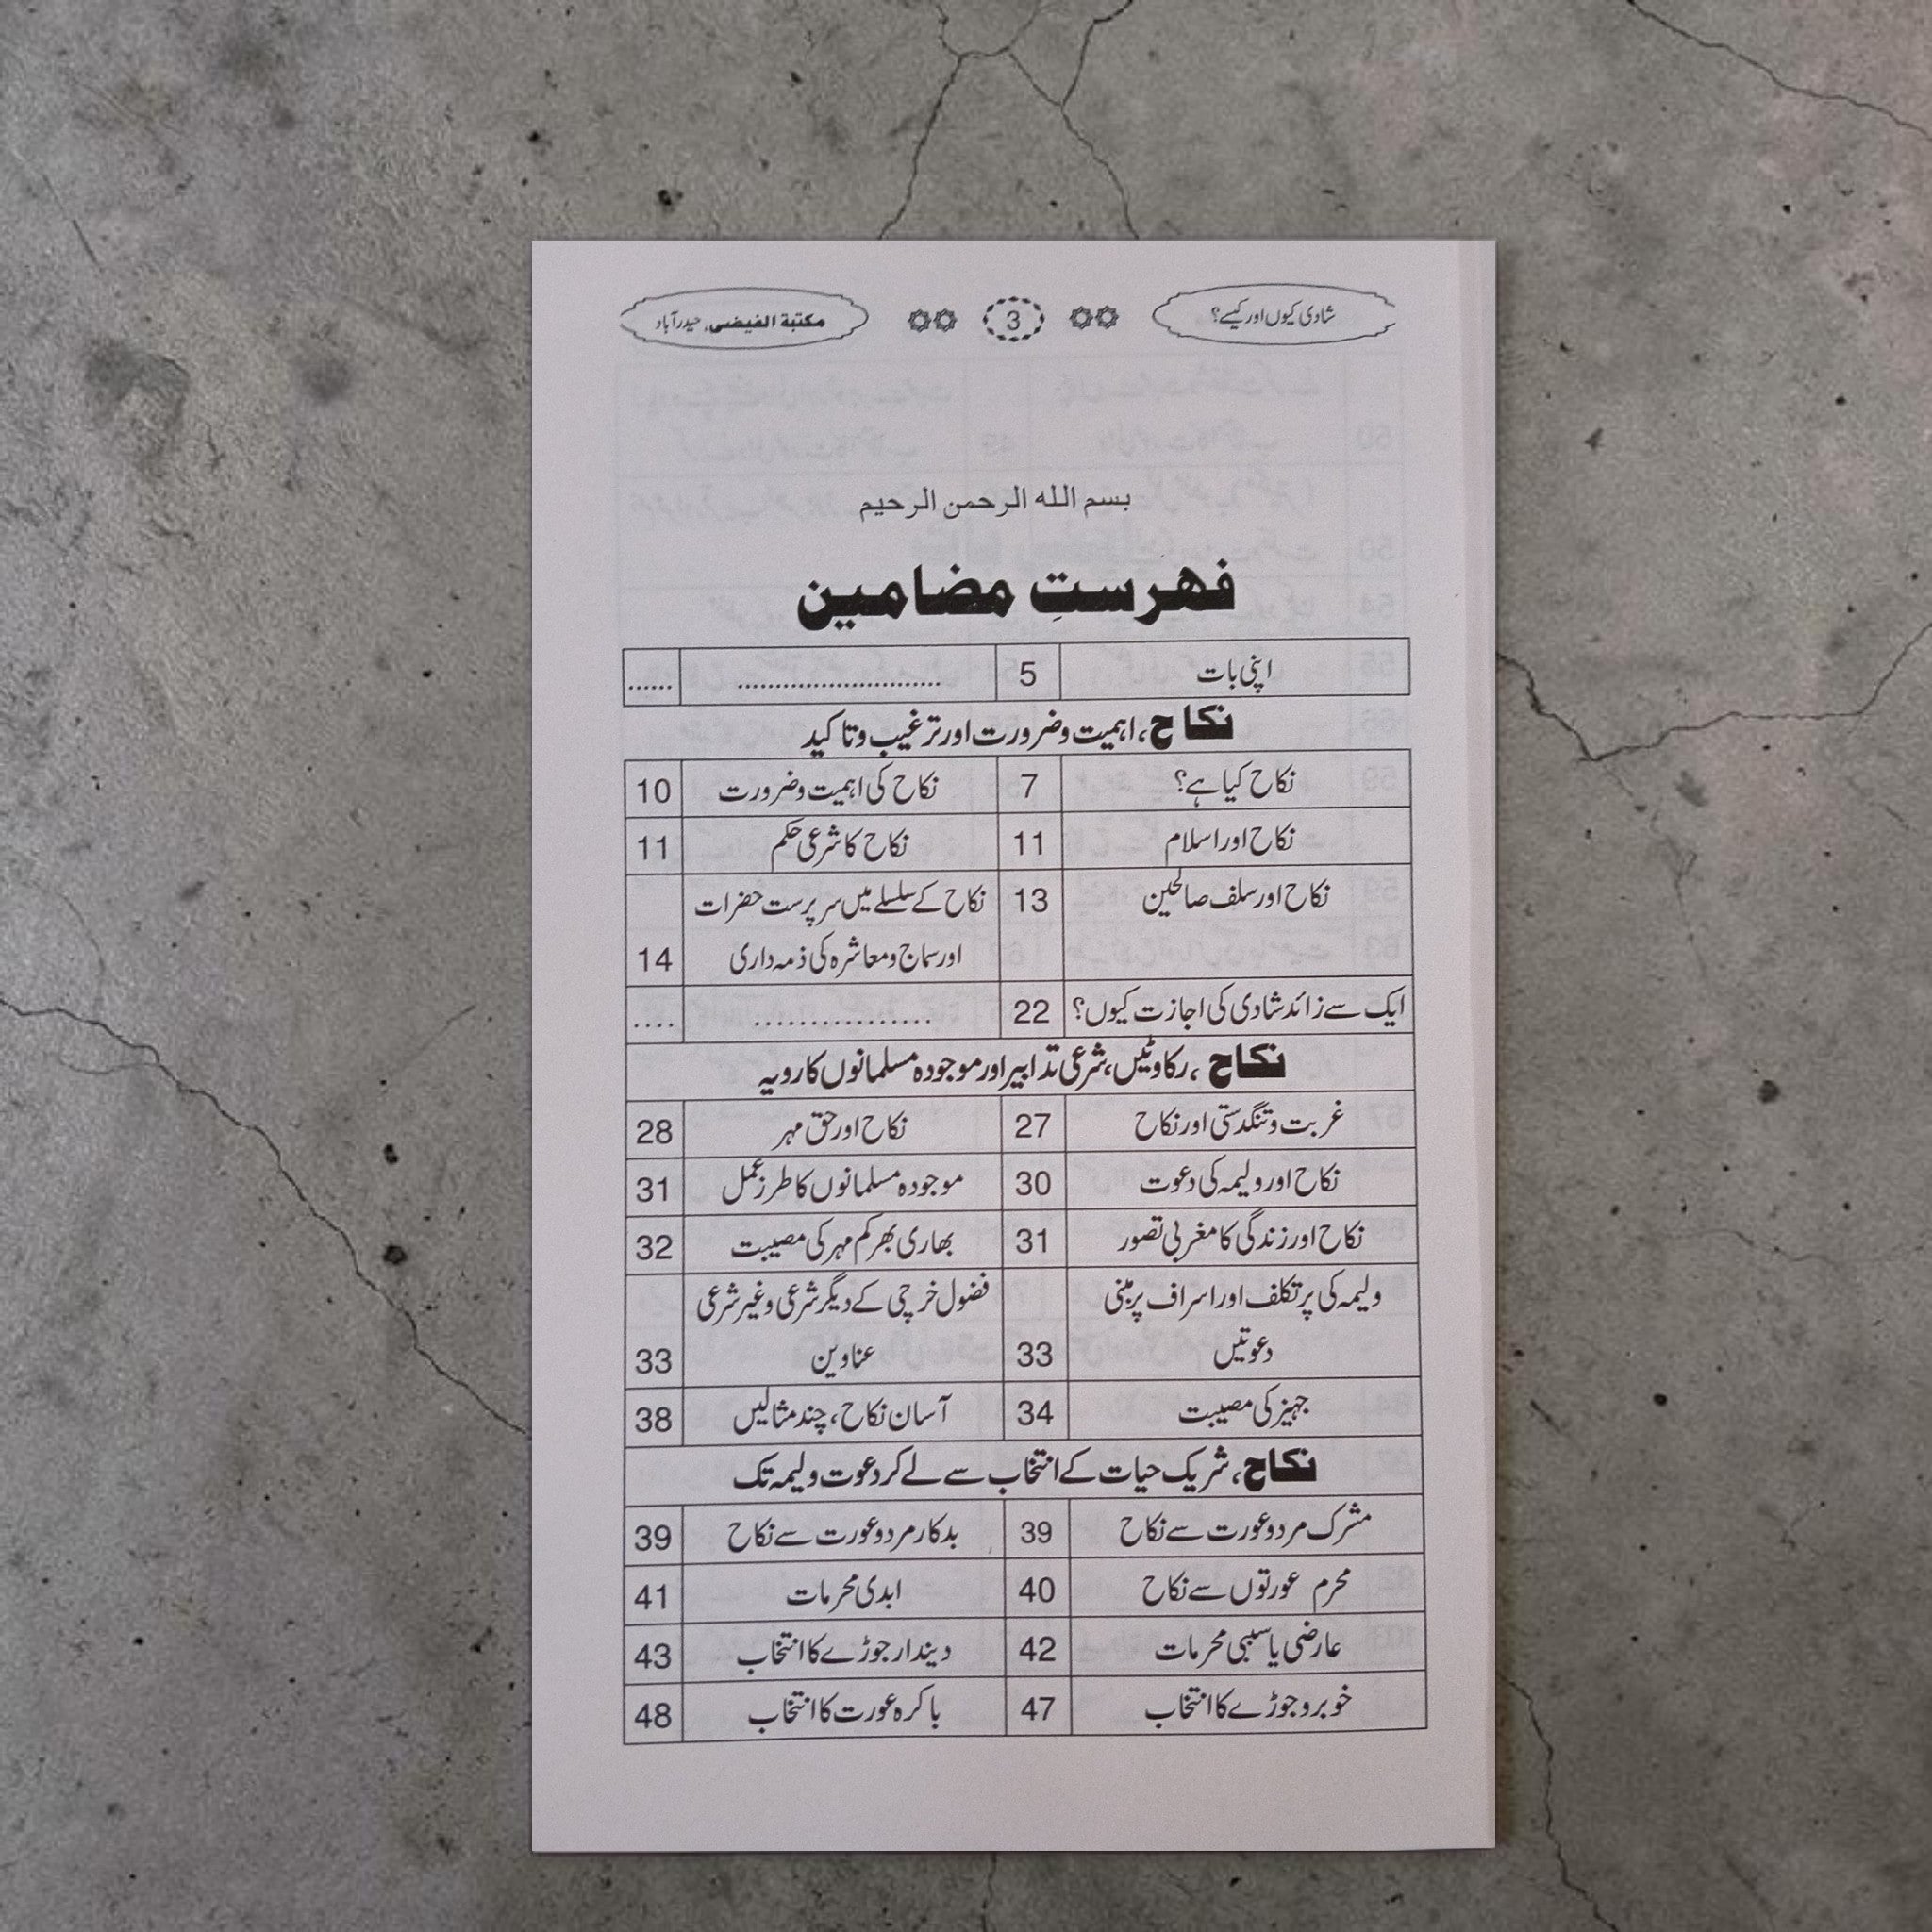 شادی کیوں اور کیسے؟ 3 مکتبة الفیضی، حیدرآباد
بسم الله الرحمن الرحيم
فہرستِ مضامین
اپنی بات 5 ........................... ......
نکاح، اہمیت وضرورت اور ترغیب وتاکید
نکاح کیا ہے؟ 7 نکاح کی اہمیت وضرورت 10
نکاح اور اسلام 11 نکاح کا شرعی حکم 11
نکاح اور سلف صالحین 13 نکاح کے سلسلے میں سرپرست حضرات
اور سماج ومعاشرہ کی ذمہ داری 14
ایک سے زائد شادی کی اجازت کیوں؟ 22 ................ ....
نکاح، رکاوٹیں، شرعی تدابیر اور موجودہ مسلمانوں کا رویہ
غربت وتنگدستی اور نکاح 27 نکاح اور حق مہر 28
نکاح اور ولیمہ کی دعوت 30 موجودہ مسلمانوں کا طرز عمل 31
نکاح اور زندگی کا مغربی تصور 31 بھاری بھرکم مہر کی مصیبت 32
ولیمہ کی پرتکلف اور اسراف پر مبنی فضول خرچی کے دیگر شرعی وغیر شرعی
دعوتیں 33 عناوین 33
جہیز کی مصیبت 34 آسان نکاح، چند مثالیں 38
نکاح، شریک حیات کے انتخاب سے لے کر دعوت ولیمہ تک
مشرک مرد وعورت سے نکاح 39 بدکار مرد وعورت سے نکاح 39
محرم عورتوں سے نکاح 40 ابدی محرمات 41
عارضی یا سببی محرمات 42 دیندار جوڑے کا انتخاب 43
خوبرو جوڑے کا انتخاب 47 باکرہ عورت کا انتخاب 48